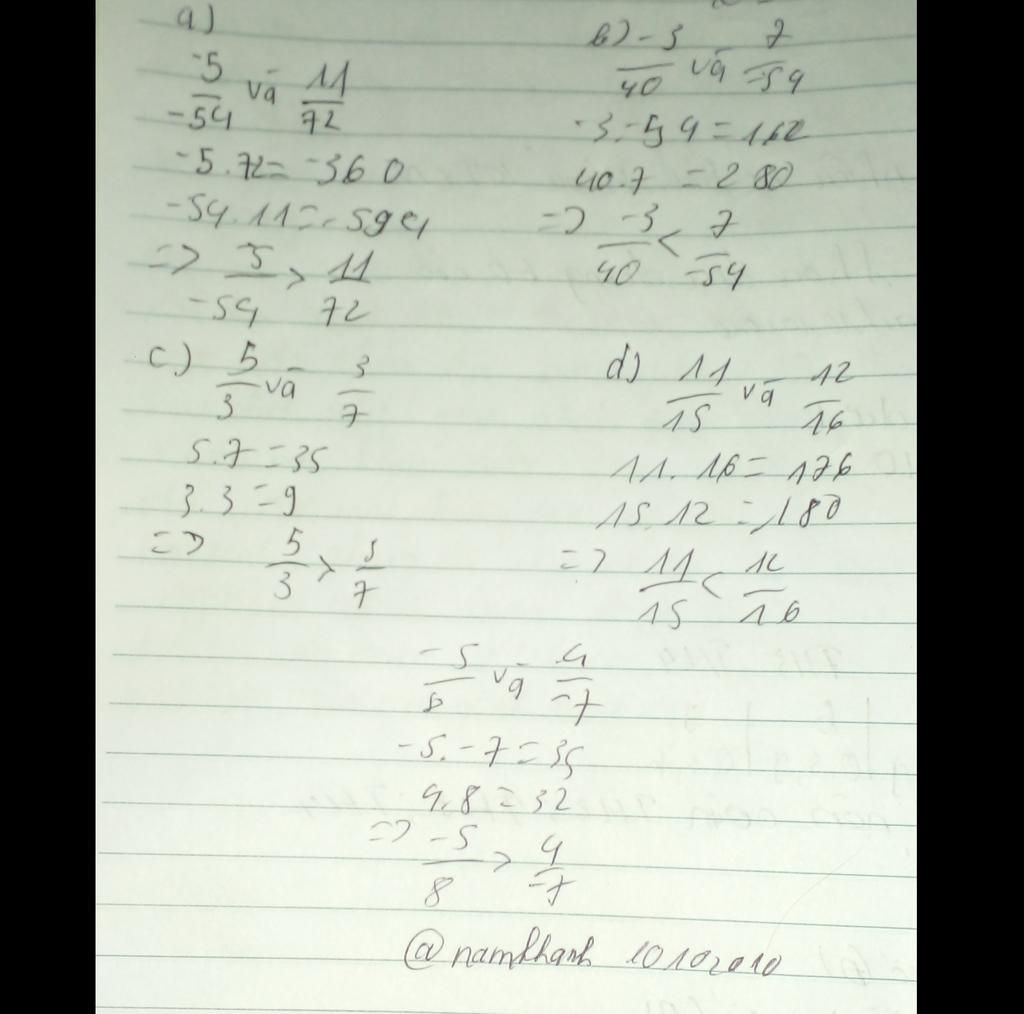 a)
-5/-54 và 11/72
-5.72=-360
-54.11=-594
=> 5/-54 > 11/72
b) -3/40 và 7/-54
-3.-54=162
40.7=280
=> -3/40 < 7/-54
c) 5/3 và 3/7
5.7=35
3.3=9
=> 5/3 > 3/7
d) 11/15 và 12/16
11.16=176
15.12=180
=> 11/15 < 12/16
-5/8 và 4/-7
-5.-7=35
4.8=32
=> -5/8 > 4/-7
@namkhanh 10102010